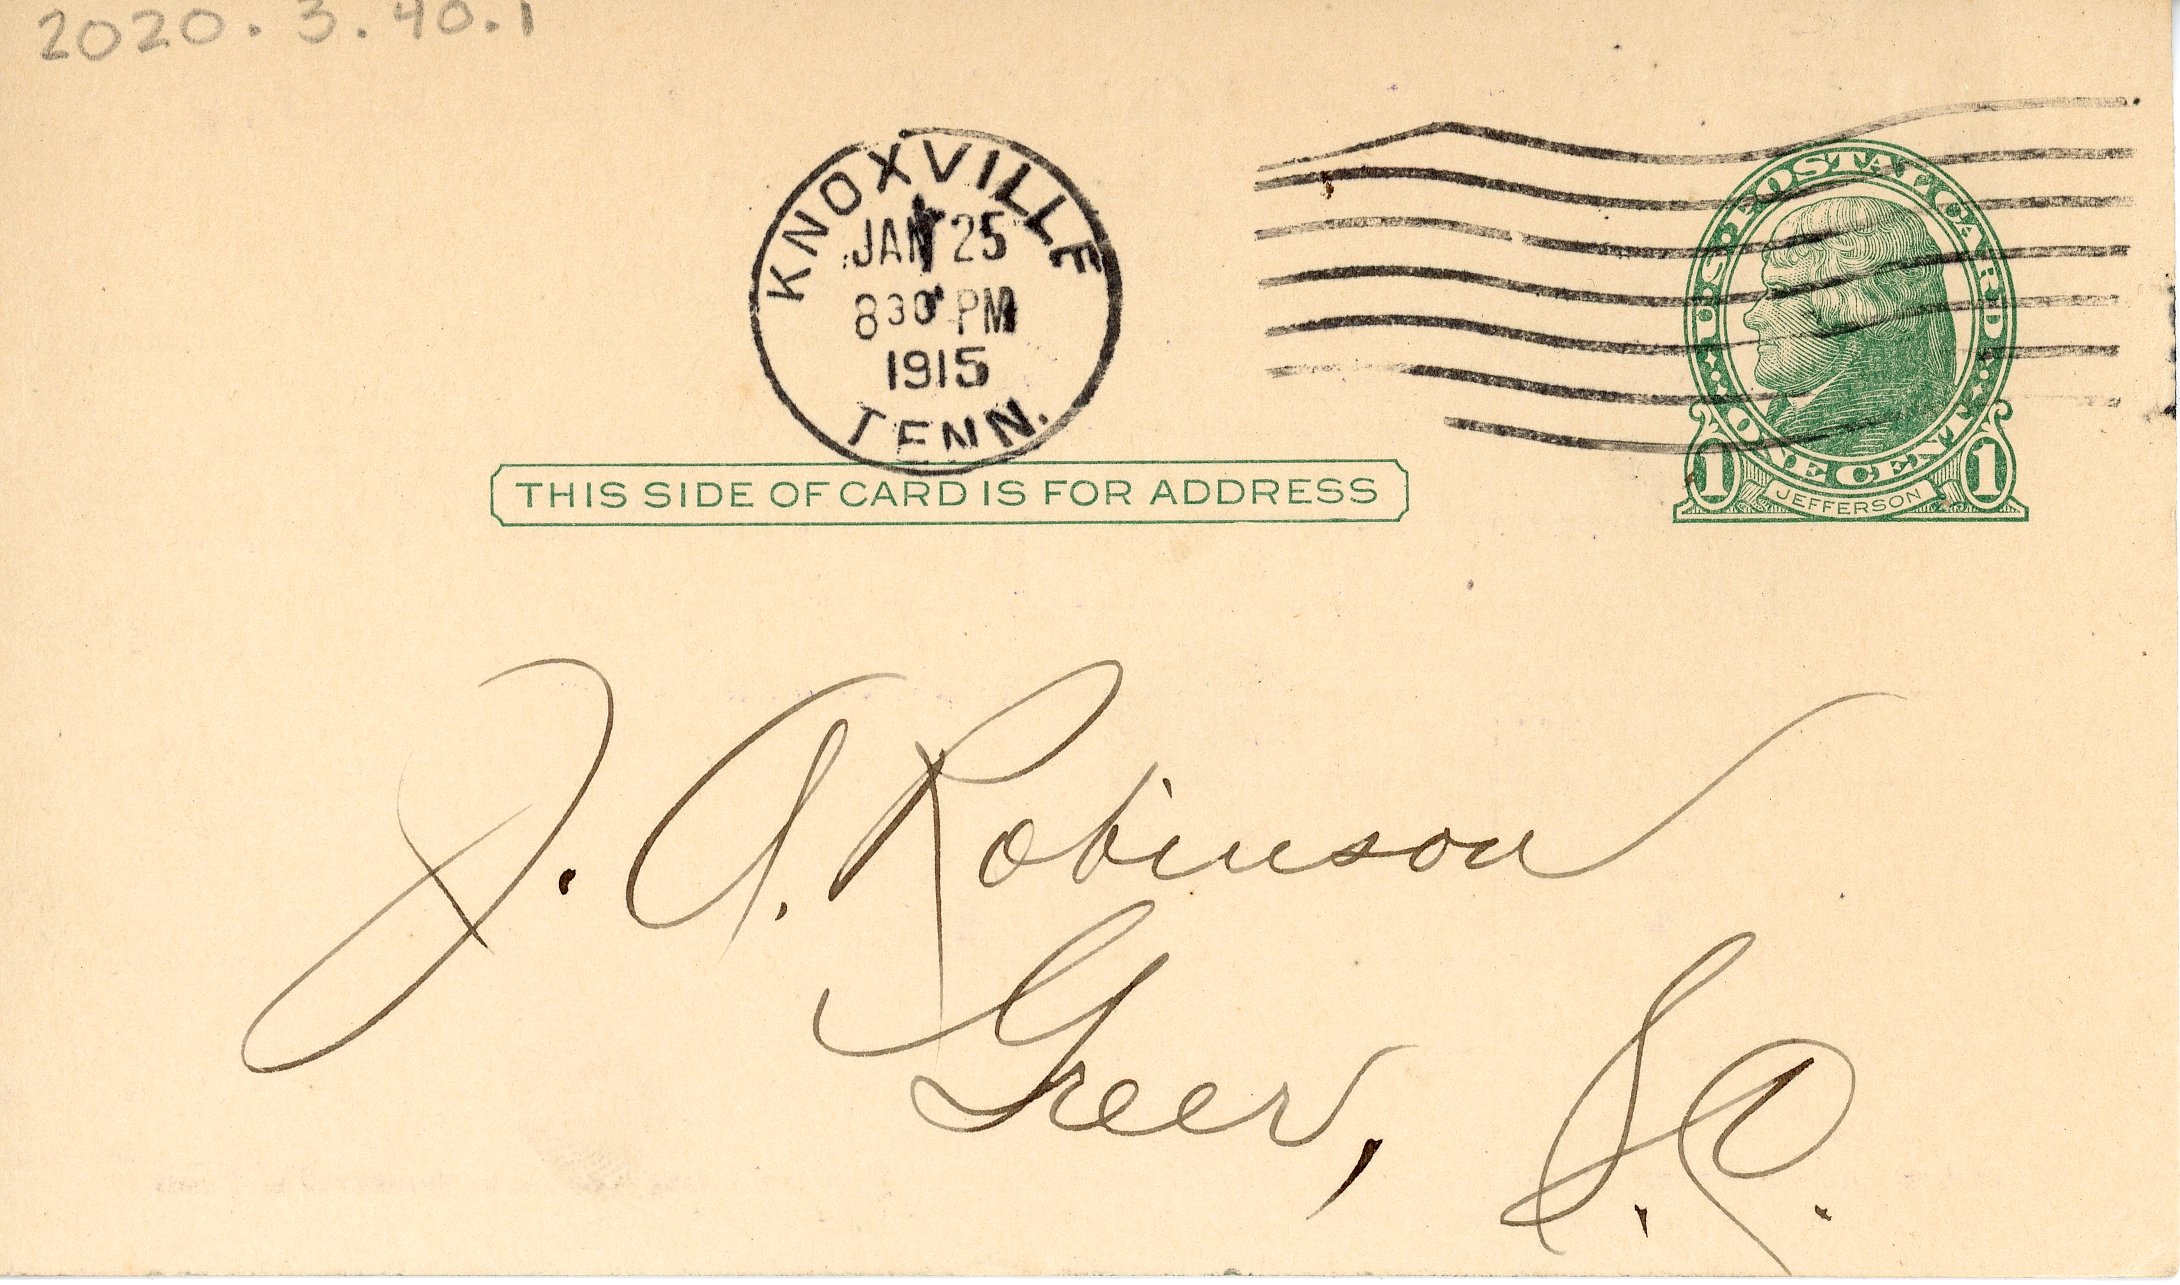 2020.3.40.1
KNOXVILLE
JAN 25
8 30 PM
1915
TENN.
U.S. POSTAL CARD
ONE CENT
1 JEFFERSON 1
THIS SIDE OF CARD IS FOR ADDRESS
J. A. Robinson
Greer, S.C.